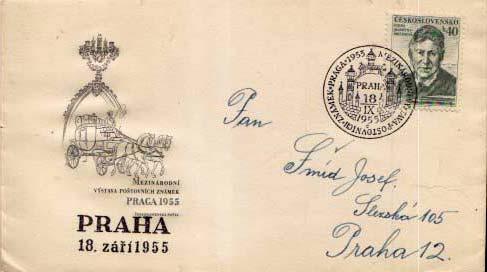 MEZINÁRODNÍ
VÝSTAVA POŠTOVNÍCH ZNÁMEK
PRAGA 1955
PRAHA
18. září 1955
ČESKOSLOVENSKO
40
PRAGA·1955
MEZINÁRODNÍ
POŠTOVNÍCH ZNÁMEK
PRAHA
18
IX
1955
Pan
Šmíd Josef.
Slezská 105
Praha 12.